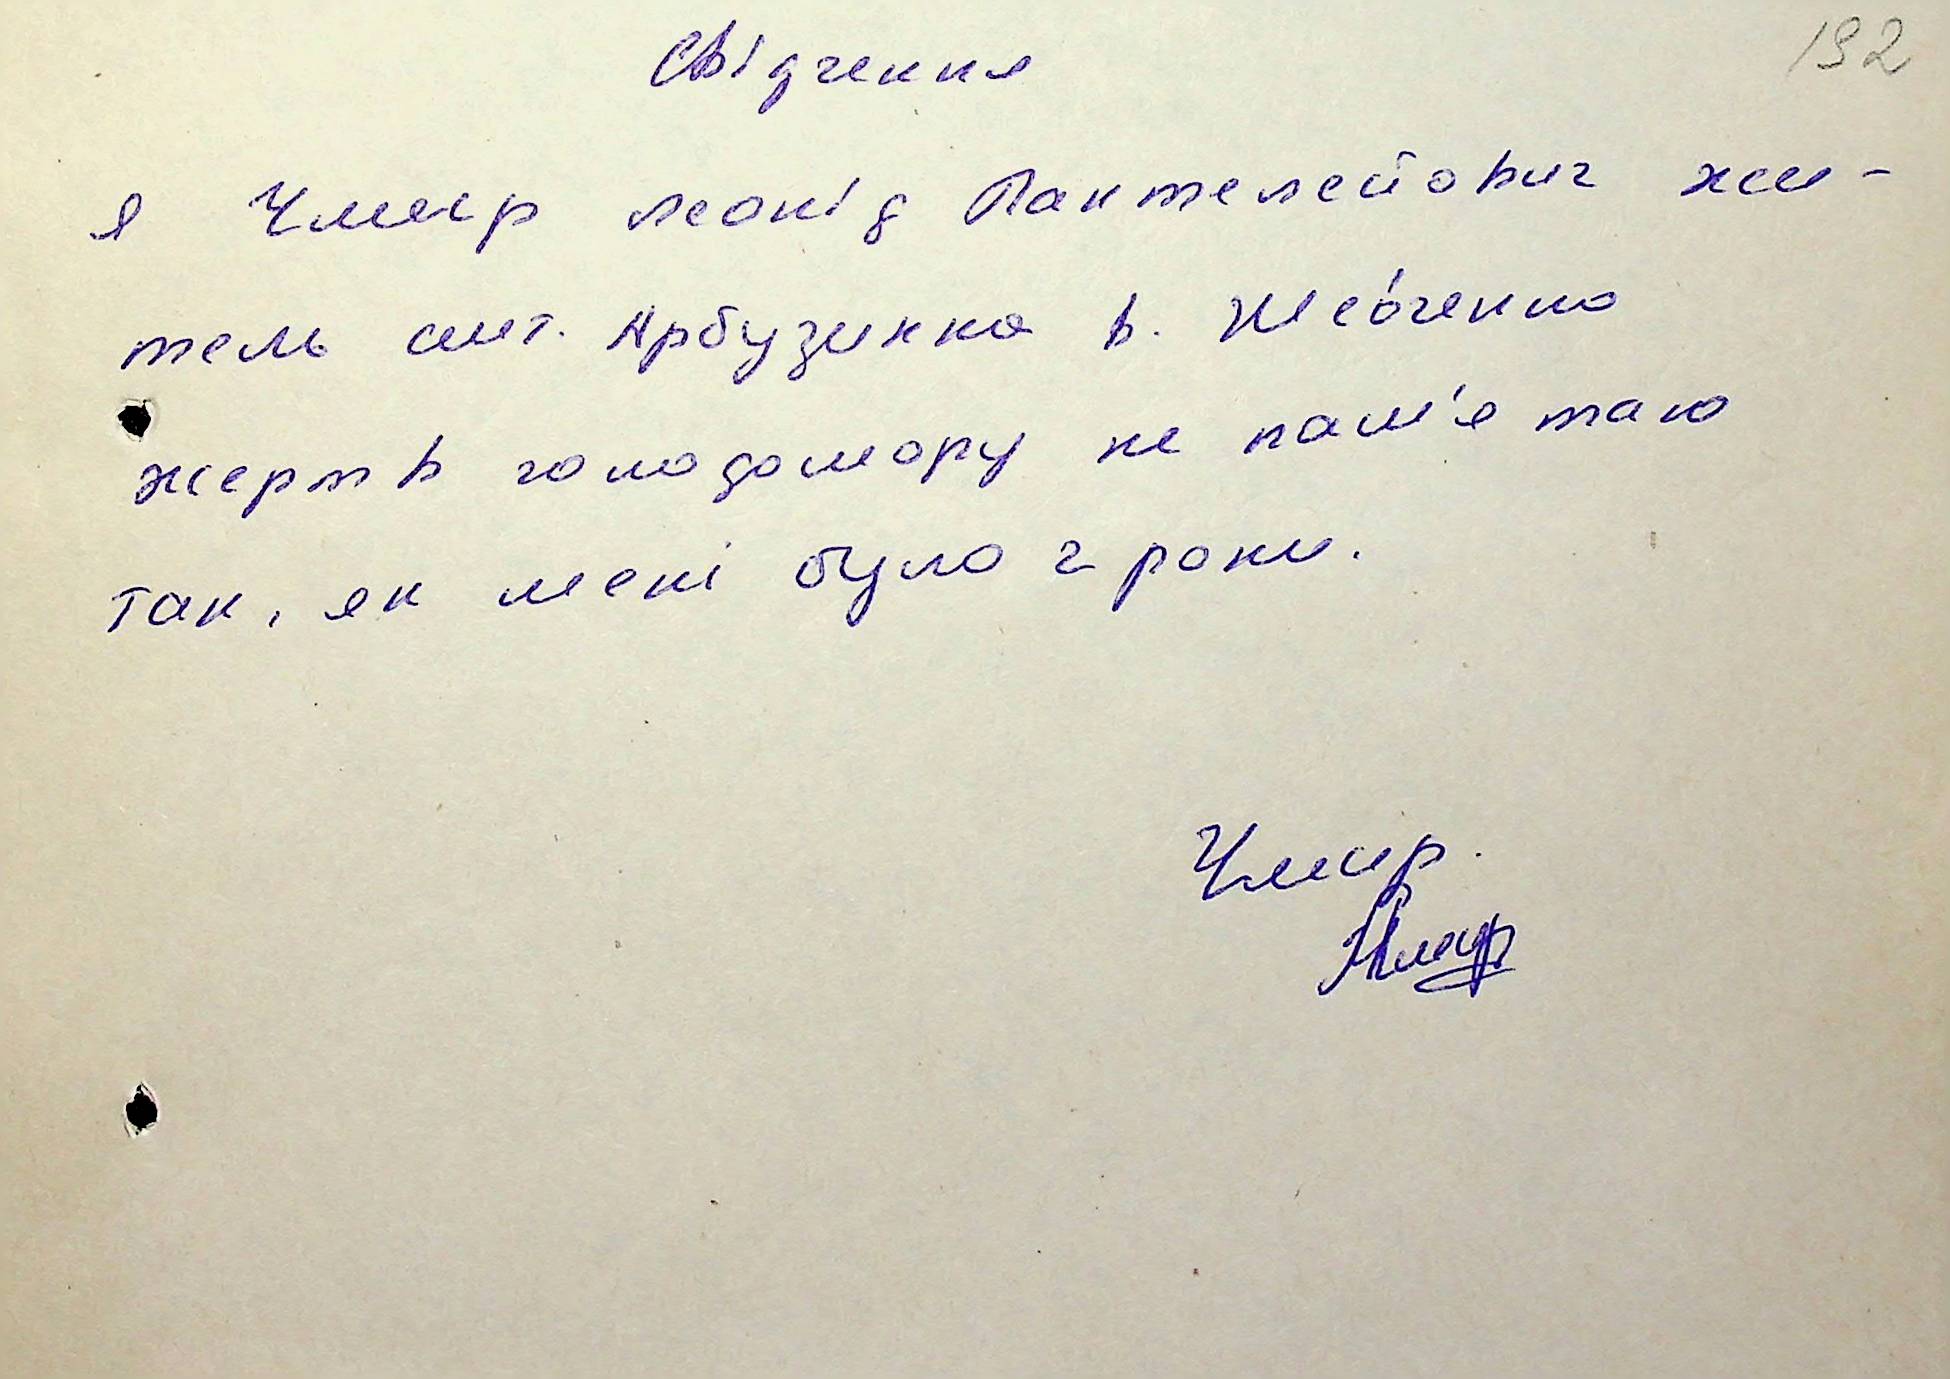 192
Свідчення
я Чмир леонід Пантелейович жи-
тель смт. Арбузинка в. Шевченко
жертв голодомору не пам'ятаю
так, як мені було 2 роки.
Чмир.
Чмир